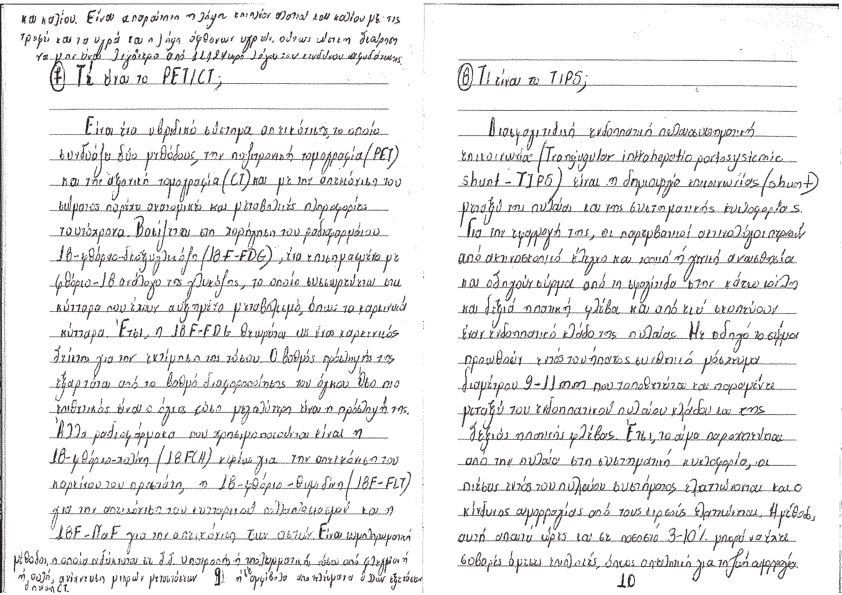 και καλίου. Είναι απαραίτητη η λήψη επιπλέον αλατιού και καλίου με τις
τροφές και τα υγρά και η λήψη άφθονων υγρών, ούτως ώστε η διούρηση
να μην είναι λιγότερο από λόγω του κινδύνου αφυδάτωσης
7 Τι είναι το PET/CT;
Είναι ένα υβριδικό σύστημα απεικόνισης, το οποίο
συνδυάζει δύο μεθόδους, την ποζιτρονική τομογραφία (PET)
και την αξονική τομογραφία (CT) και με την απεικόνιση του
σώματος παρέχει ανατομικές και μεταβολικές πληροφορίες
ταυτόχρονα. Βασίζεται στη χορήγηση του ραδιοφαρμάκου
18-φθόριο-δεοξυγλυκόζη (18F-FDG), ένα επισημασμένο με
φθόριο-18 ανάλογο της γλυκόζης, το οποίο συσσωρεύεται στα
κύτταρα που έχουν αυξημένο μεταβολισμό, όπως τα καρκινικά
κύτταρα. Έτσι, η 18F-FDG θεωρείται ως ένας καρκινικός
δείκτης για την εκτίμηση της νόσου. Ο βαθμός πρόσληψής της
εξαρτάται από το βαθμό διαφοροποίησης του όγκου. Όσο πιο
επιθετικός είναι ο όγκος τόσο μεγαλύτερη είναι η πρόσληψή της.
Άλλα ραδιοφάρμακα που χρησιμοποιούνται είναι η
18-φθόριο-χολίνη (18FCH) κυρίως για την απεικόνιση του
καρκίνου του προστάτη, η 18-φθόριο-θυμιδίνη (18F-FLT)
για την απεικόνιση του κυτταρικού πολλαπλασιασμού και η
18F-NaF για την απεικόνιση των οστών. Είναι συμπληρωματική
μέθοδος, η οποία ενδείκνυται σε δ.δ. υποτροπής ή υπολειμματικής νόσου από φλεγμονή
ή ουλή, ανίχνευση μικρών μεταστάσεων ή σε αμφίβολα αποτελέσματα άλλων εξετάσεων
πχ CT.
9
8 Τι είναι το TIPS;
Διασφαγιτιδική ενδοηπατική πυλαιοσυστηματική
επικοινωνία (Transjugular intrahepatic portosystemic
shunt - TIPS) είναι η δημιουργία επικοινωνίας (shunt)
μεταξύ της πυλαίας και της συστηματικής κυκλοφορίας.
Για την εφαρμογή της, οι παρεμβατικοί ακτινολόγοι περνούν
από ακτινοσκοπικό έλεγχο και τοπική ή γενική αναισθησία
και οδηγούν σύρμα από τη σφαγίτιδα στην κάτω κοίλη
και δεξιά ηπατική φλέβα και από εκεί σκοπεύουν
έναν ενδοηπατικό κλάδο της πυλαίας. Με οδηγό το σύρμα
προωθούν εντός του ήπατος συνθετικό μόσχευμα
διαμέτρου 9-11mm που τοποθετείται και παραμένει
μεταξύ του ενδοηπατικού πυλαίου κλάδου και της
δεξιάς ηπατικής φλέβας. Έτσι, το αίμα παροχετεύεται
από την πυλαία στη συστηματική κυκλοφορία, οι
πιέσεις εντός του πυλαίου συστήματος ελαττώνονται και ο
κίνδυνος αιμορραγίας από τους κιρσούς ελαττώνεται. Η μέθοδος
αυτή απαιτεί ώρες και σε ποσοστό 3-10% μπορεί να έχει
σοβαρές άμεσες επιπλοκές, όπως απειλητική για τη ζωή αιμορραγία.
10